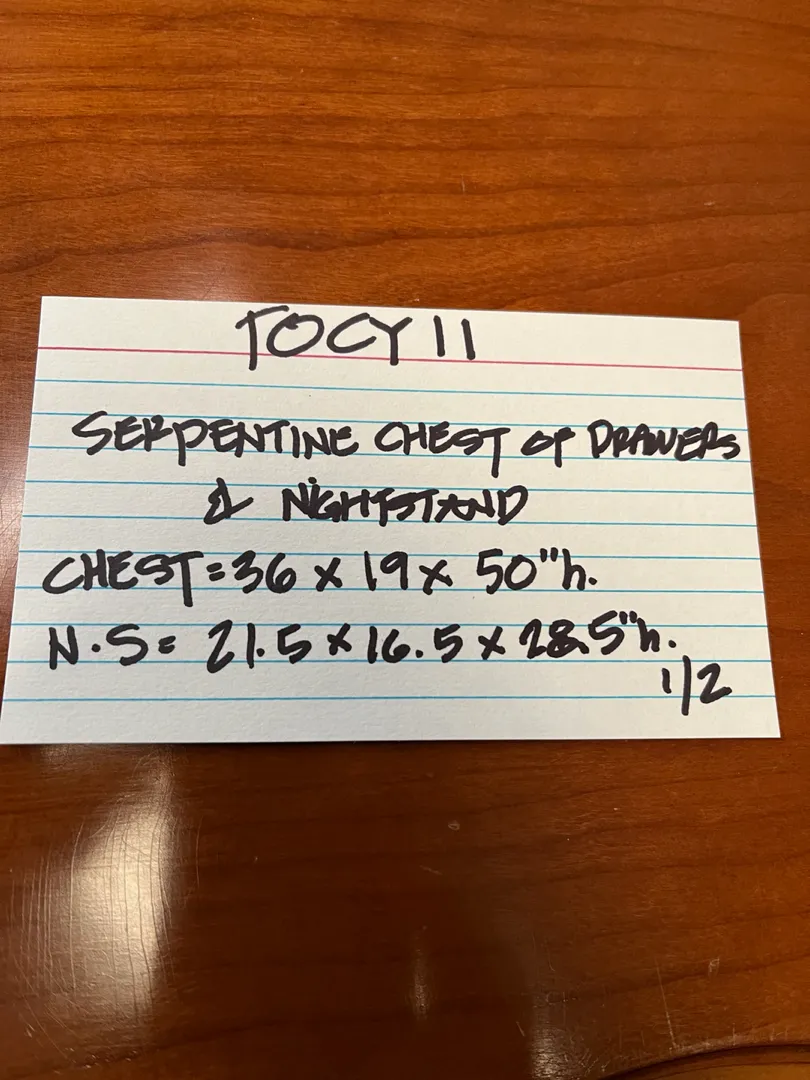 TOCY 11
SERPENTINE CHEST OF DRAWERS
& NIGHTSTAND
CHEST = 36 x 19 x 50"h.
N.S = 21.5 x 16.5 x 28.5"h.
1/2